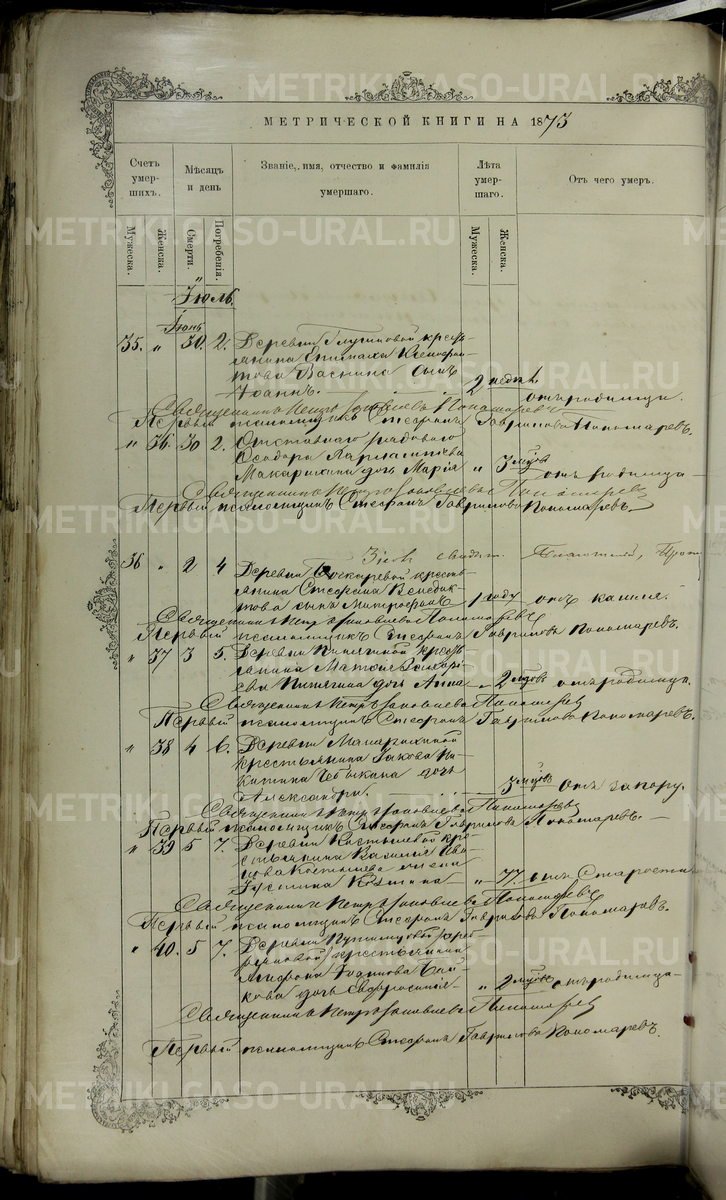 METRIKI.GASO-URAL.RU
МЕТРИЧЕСКОЙ КНИГИ НА 1873
Счетъ умер- шихъ.
Мѣсяцъ и день
Званіе, имя, отчество и фамилія умершаго.
Лѣта умер- шаго.
Отъ чего умеръ.
Мужеска.
Женска.
Смерти.
Погребенія.
Мужеска.
Женска.
Іюль.
Іюнь
35. " 30. 2. Деревни кресть-
янина
това сынъ
Іоаннъ. 2 недѣл. отъ родимца.
Священникъ Петръ Іаковлевъ Пономаревъ
Первый псаломщикъ Стефанъ Гавриловъ Пономаревъ.
" 36. 30 2. Отставнаго рядоваго
Ѳеодора
Макарихина дочь Марія " 3 мѣсяцовъ отъ родимца
Священникъ Петръ Іаковлевъ Пономаревъ
Первый псаломщикъ Стефанъ Гавриловъ Пономаревъ.
36 " 2 4 Деревни кресть-
янина Стефана Венедик-
това сынъ Митрофанъ 1 году отъ кашля.
Священникъ Петръ Іаковлевъ Пономаревъ
Первый псаломщикъ Стефанъ Гавриловъ Пономаревъ.
" 37 3 5. Деревни кресть-
янина Матѳея Захарі-
ева дочь Анна " 2 мѣсяцовъ отъ родимца.
Священникъ Петръ Іаковлевъ Пономаревъ
Первый псаломщикъ Стефанъ Гавриловъ Пономаревъ.
" 38 4 6. Деревни Макарихиной
крестьянина Іакова Ни-
китина дочь
Александра. 3 мѣсяцовъ отъ запору.
Священникъ Петръ Іаковлевъ Пономаревъ
Первый псаломщикъ Стефанъ Гавриловъ Пономаревъ.
" 39 5 7. Деревни Костылевой кре-
стьянина Василія Ива-
нова Костылева
" 77. отъ старости
Священникъ Петръ Іаковлевъ Пономаревъ
Первый псаломщикъ Стефанъ Гавриловъ Пономаревъ.
" 40. 5 7. Деревни
крестьянина
дочь Евфросинія " 2 мѣсяцовъ отъ родимца
Священникъ Петръ Іаковлевъ Пономаревъ
Первый псаломщикъ Стефанъ Гавриловъ Пономаревъ.